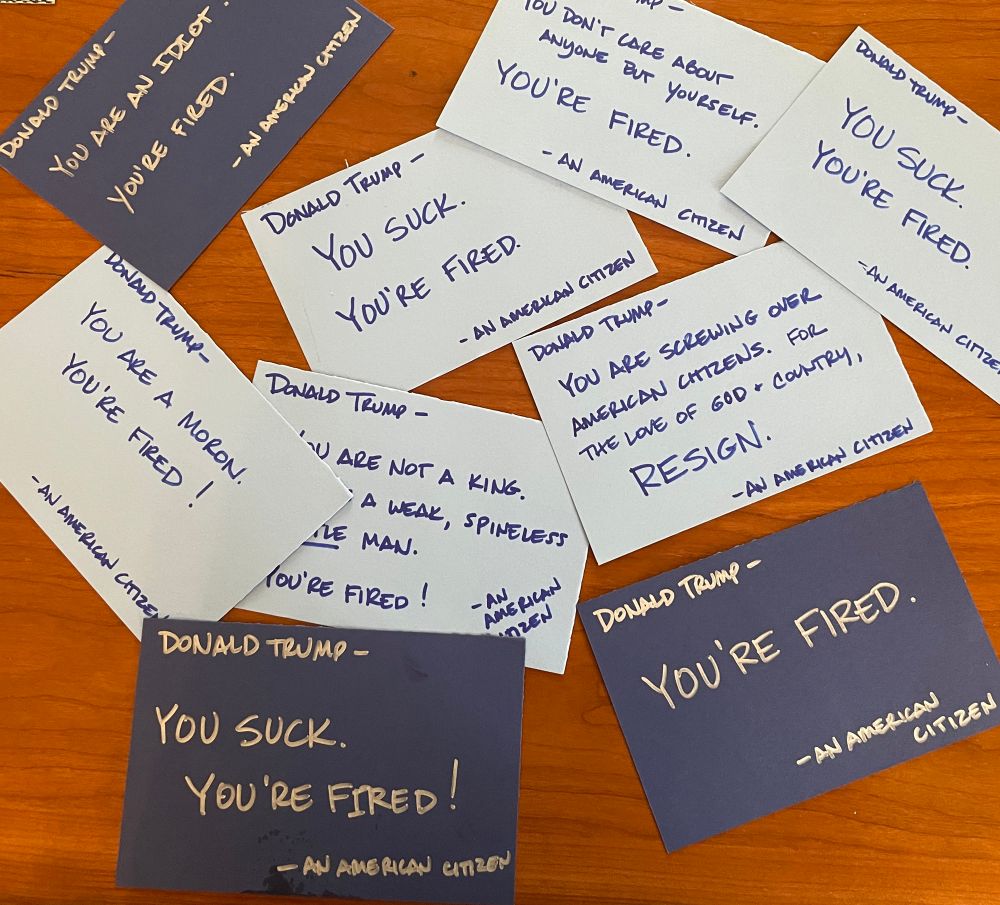 DONALD TRUMP-
YOU ARE AN IDIOT.
YOU'RE FIRED.
-AN AMERICAN CITIZEN
TRUMP-
YOU DON'T CARE ABOUT
ANYONE BUT YOURSELF.
YOU'RE FIRED.
-AN AMERICAN CITIZEN
DONALD TRUMP-
YOU SUCK.
YOU'RE FIRED.
-AN AMERICAN CITIZEN
DONALD TRUMP-
YOU SUCK.
YOU'RE FIRED.
-AN AMERICAN CITIZEN
DONALD TRUMP-
YOU ARE A MORON.
YOU'RE FIRED!
-AN AMERICAN CITIZEN
DONALD TRUMP-
YOU ARE NOT A KING.
A WEAK, SPINELESS
MAN.
YOU'RE FIRED!
-AN
AMERICAN
CITIZEN
DONALD TRUMP-
YOU ARE SCREWING OVER
AMERICAN CITIZENS. FOR
THE LOVE OF GOD + COUNTRY,
RESIGN.
-AN AMERICAN CITIZEN
DONALD TRUMP-
YOU SUCK.
YOU'RE FIRED!
-AN AMERICAN CITIZEN
DONALD TRUMP-
YOU'RE FIRED.
-AN AMERICAN
CITIZEN